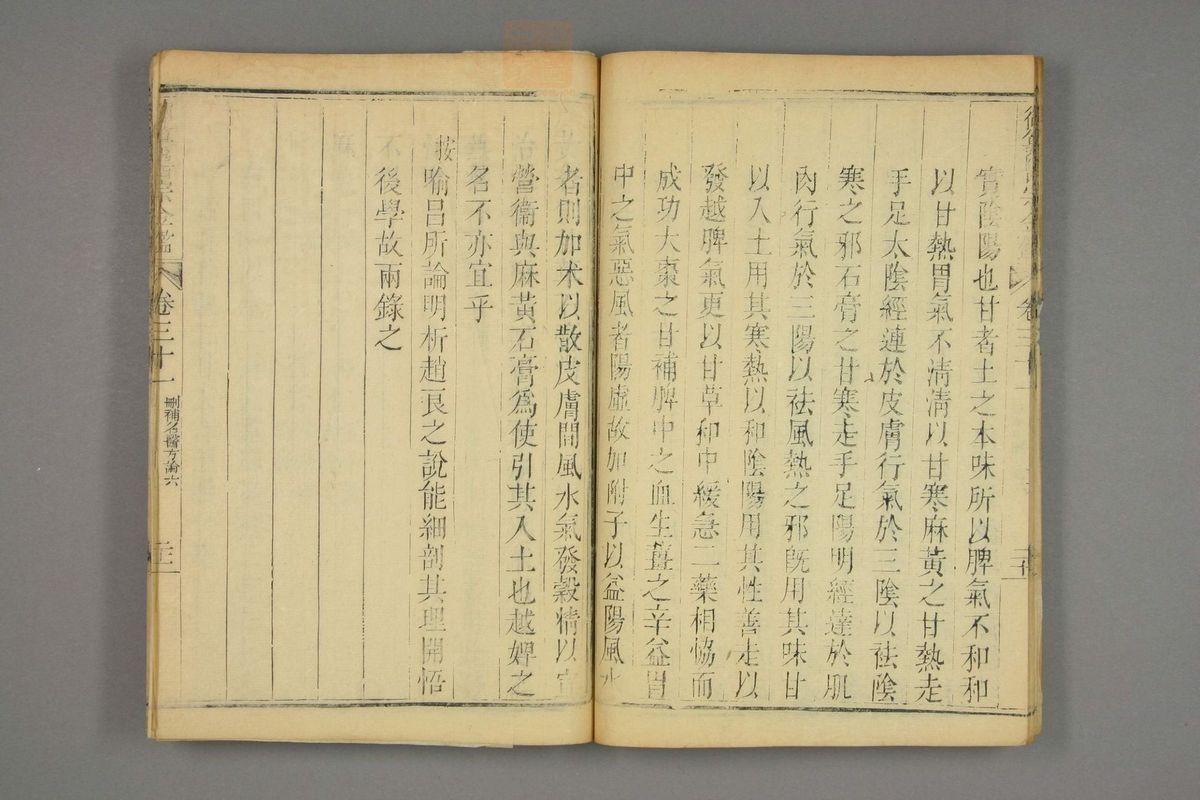 實陰陽也甘者土之本味所以脾氣不和和
以甘熱胃氣不清清以甘寒麻黃之甘熱走
手足太陰經連於皮膚行氣於三陰以祛陰
寒之邪石膏之甘寒走手足陽明經達於肌
肉行氣於三陽以祛風熱之邪既用其味甘
以入土用其寒熱以和陰陽用其性善走以
發越脾氣更以甘草和中緩急二藥相恊而
成功大棗之甘補脾中之血生薑之辛益胃
中之氣惡風者陽虛故加附子以益陽風水
者則加术以散皮膚間風水氣發榖精以宣
營衞與麻黃石膏爲使引其入土也越婢之
名不亦宜乎
按喻昌所論明析趙良之說能細剖其理開悟
後學故兩錄之
卷三十一
刪補名醫方論六